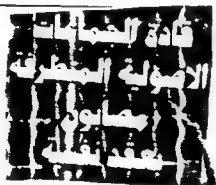 قادة الجماعات
الاصولية المتطرفة
مصابون
بعقد نفسية